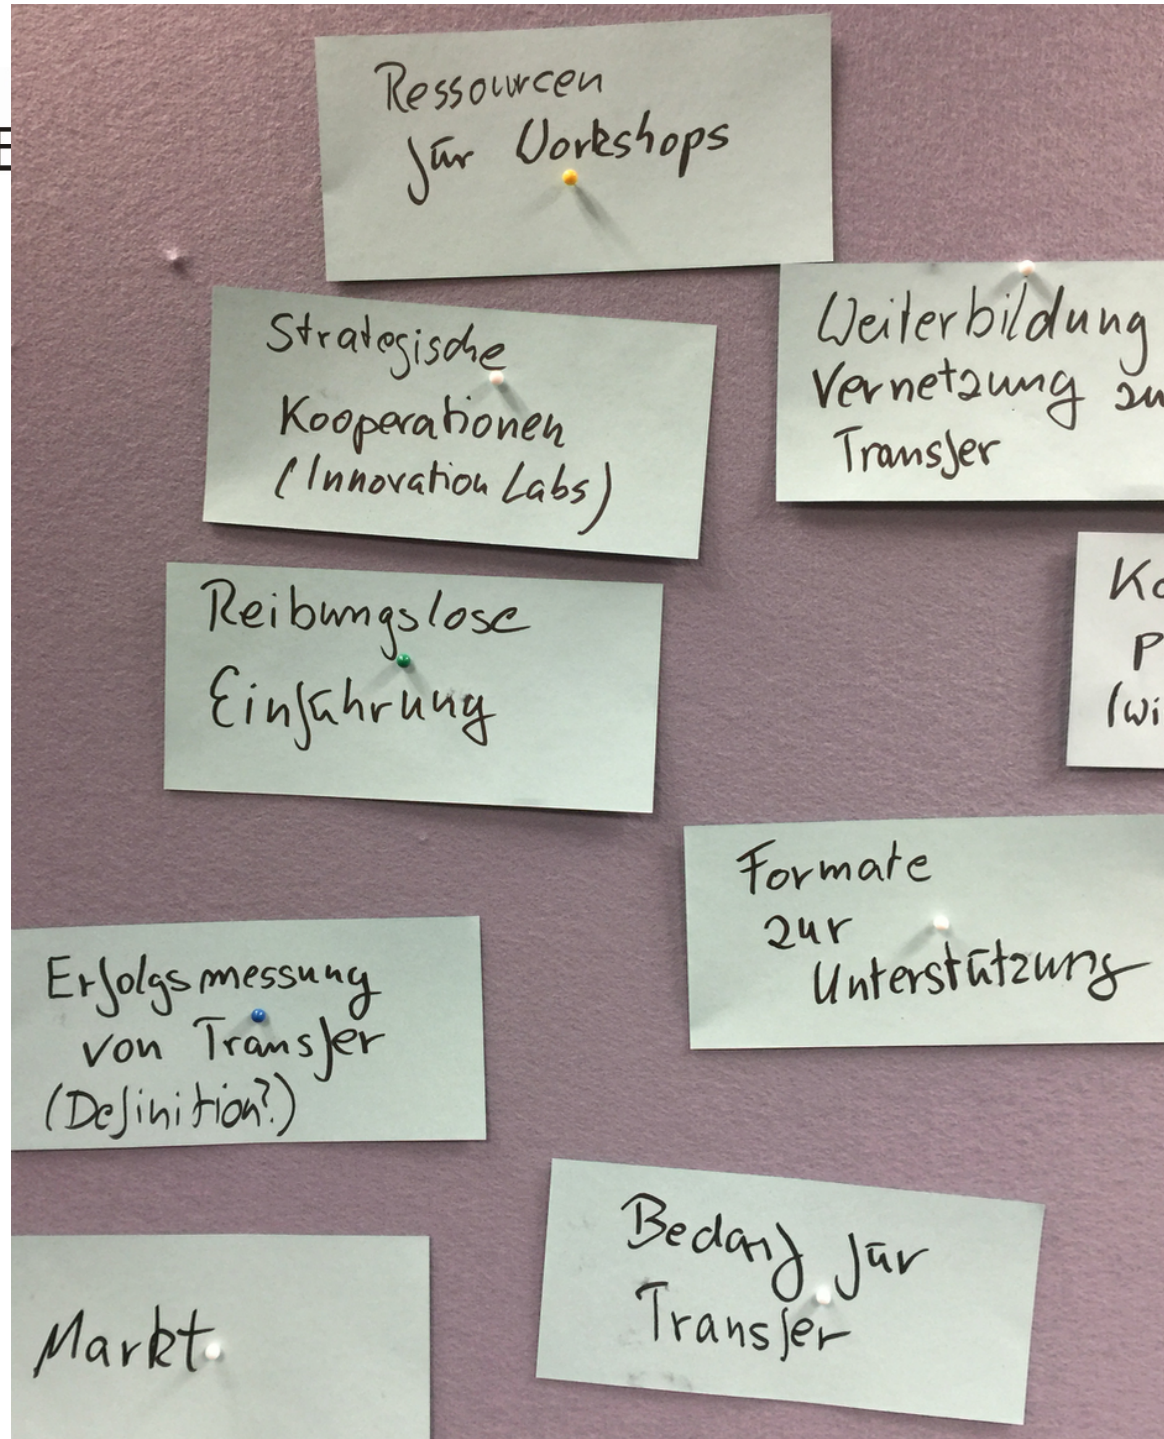 Ressourcen
für Workshops
Strategische
Kooperationen
(Innovation Labs)
Weiterbildung
Vernetzung zu
Transfer
Reibungslose
Einführung
Ko
P
(wi
Formate
zur
Unterstützung
Erfolgsmessung
von Transfer
(Definition?)
Bedarf für
Transfer
Markt